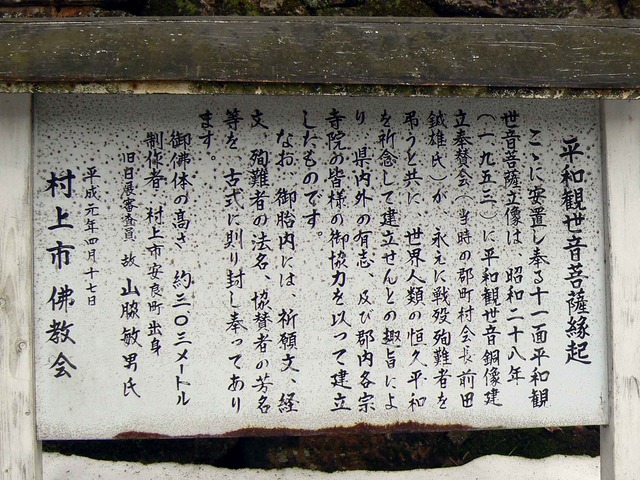 平和観世音菩薩縁起
こゝに安置し奉る十一面平和観
世音菩薩立像は、昭和二十八年
（一九五三）に平和観世音銅像建
立奉賛会（当時の郡町村会長前田
鉞雄氏）が、永えに戦殁殉難者を
弔うと共に、世界人類の恒久平和
を祈念して建立せんとの趣旨によ
り、県内外の有志、及び郡内各宗
寺院の皆様の御協力を以って建立
したものです。
なお、御胎内には、祈願文、経
文、殉難者の法名、協賛者の芳名
等を、古式に則り封し奉ってあり
ます。
御佛体の高さ　約三〇三メートル
制作者　村上市安良町出身
旧日展審査員　故　山脇敏男氏
平成元年四月十七日
村上市佛教会